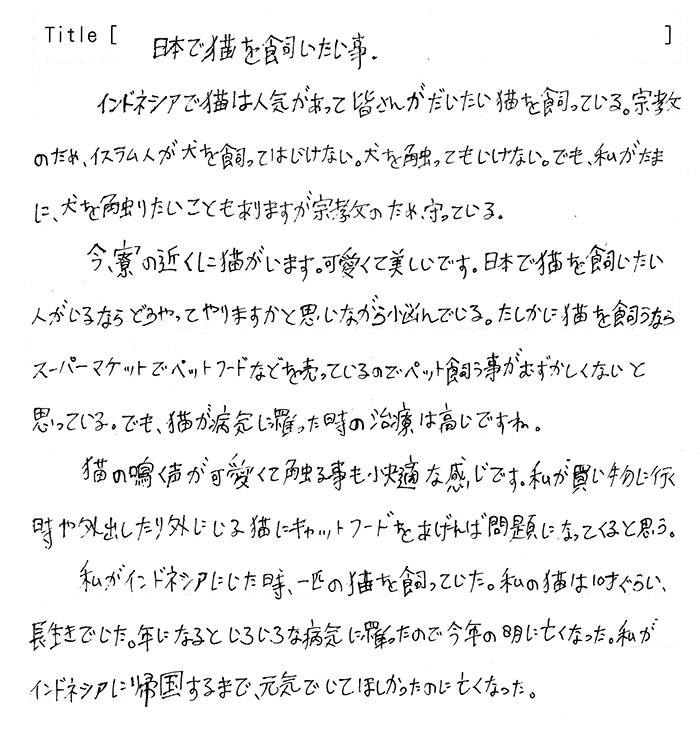 Title [ 日本で猫を飼いたい事. ]
インドネシアで猫は人気があって皆さんがだいたい猫を飼っている。宗教
のため、イスラム人が犬を飼ってはいけない。犬を触ってもいけない。でも、私がたま
に、犬を触りたいこともありますが宗教のため、守っている。
今、寮の近くに猫がいます。可愛くて美しいです。日本で猫を飼いたい
人がいるならどうやってやりますかと思いながら悩んでいる。たしかに猫を飼うなら
スーパーマケットでペットフードなどを売っているのでペット飼う事がむずかしくないと
思っている。でも、猫が病気に罹った時の治療は高いですね。
猫の鳴く声が可愛くて触る事も快適な感じです。私が買い物に行く
時や外出したり外にいる猫にキャットフードをあげれば問題になってくると思う。
私がインドネシアにいた時、一匹の猫を飼っていた。私の猫は10才ぐらい、
長生きでいた。年になるといろいろな病気に罹ったので今年の8月に亡くなった。私が
インドネシアに帰国するまで、元気でいてほしかったのに亡くなった。